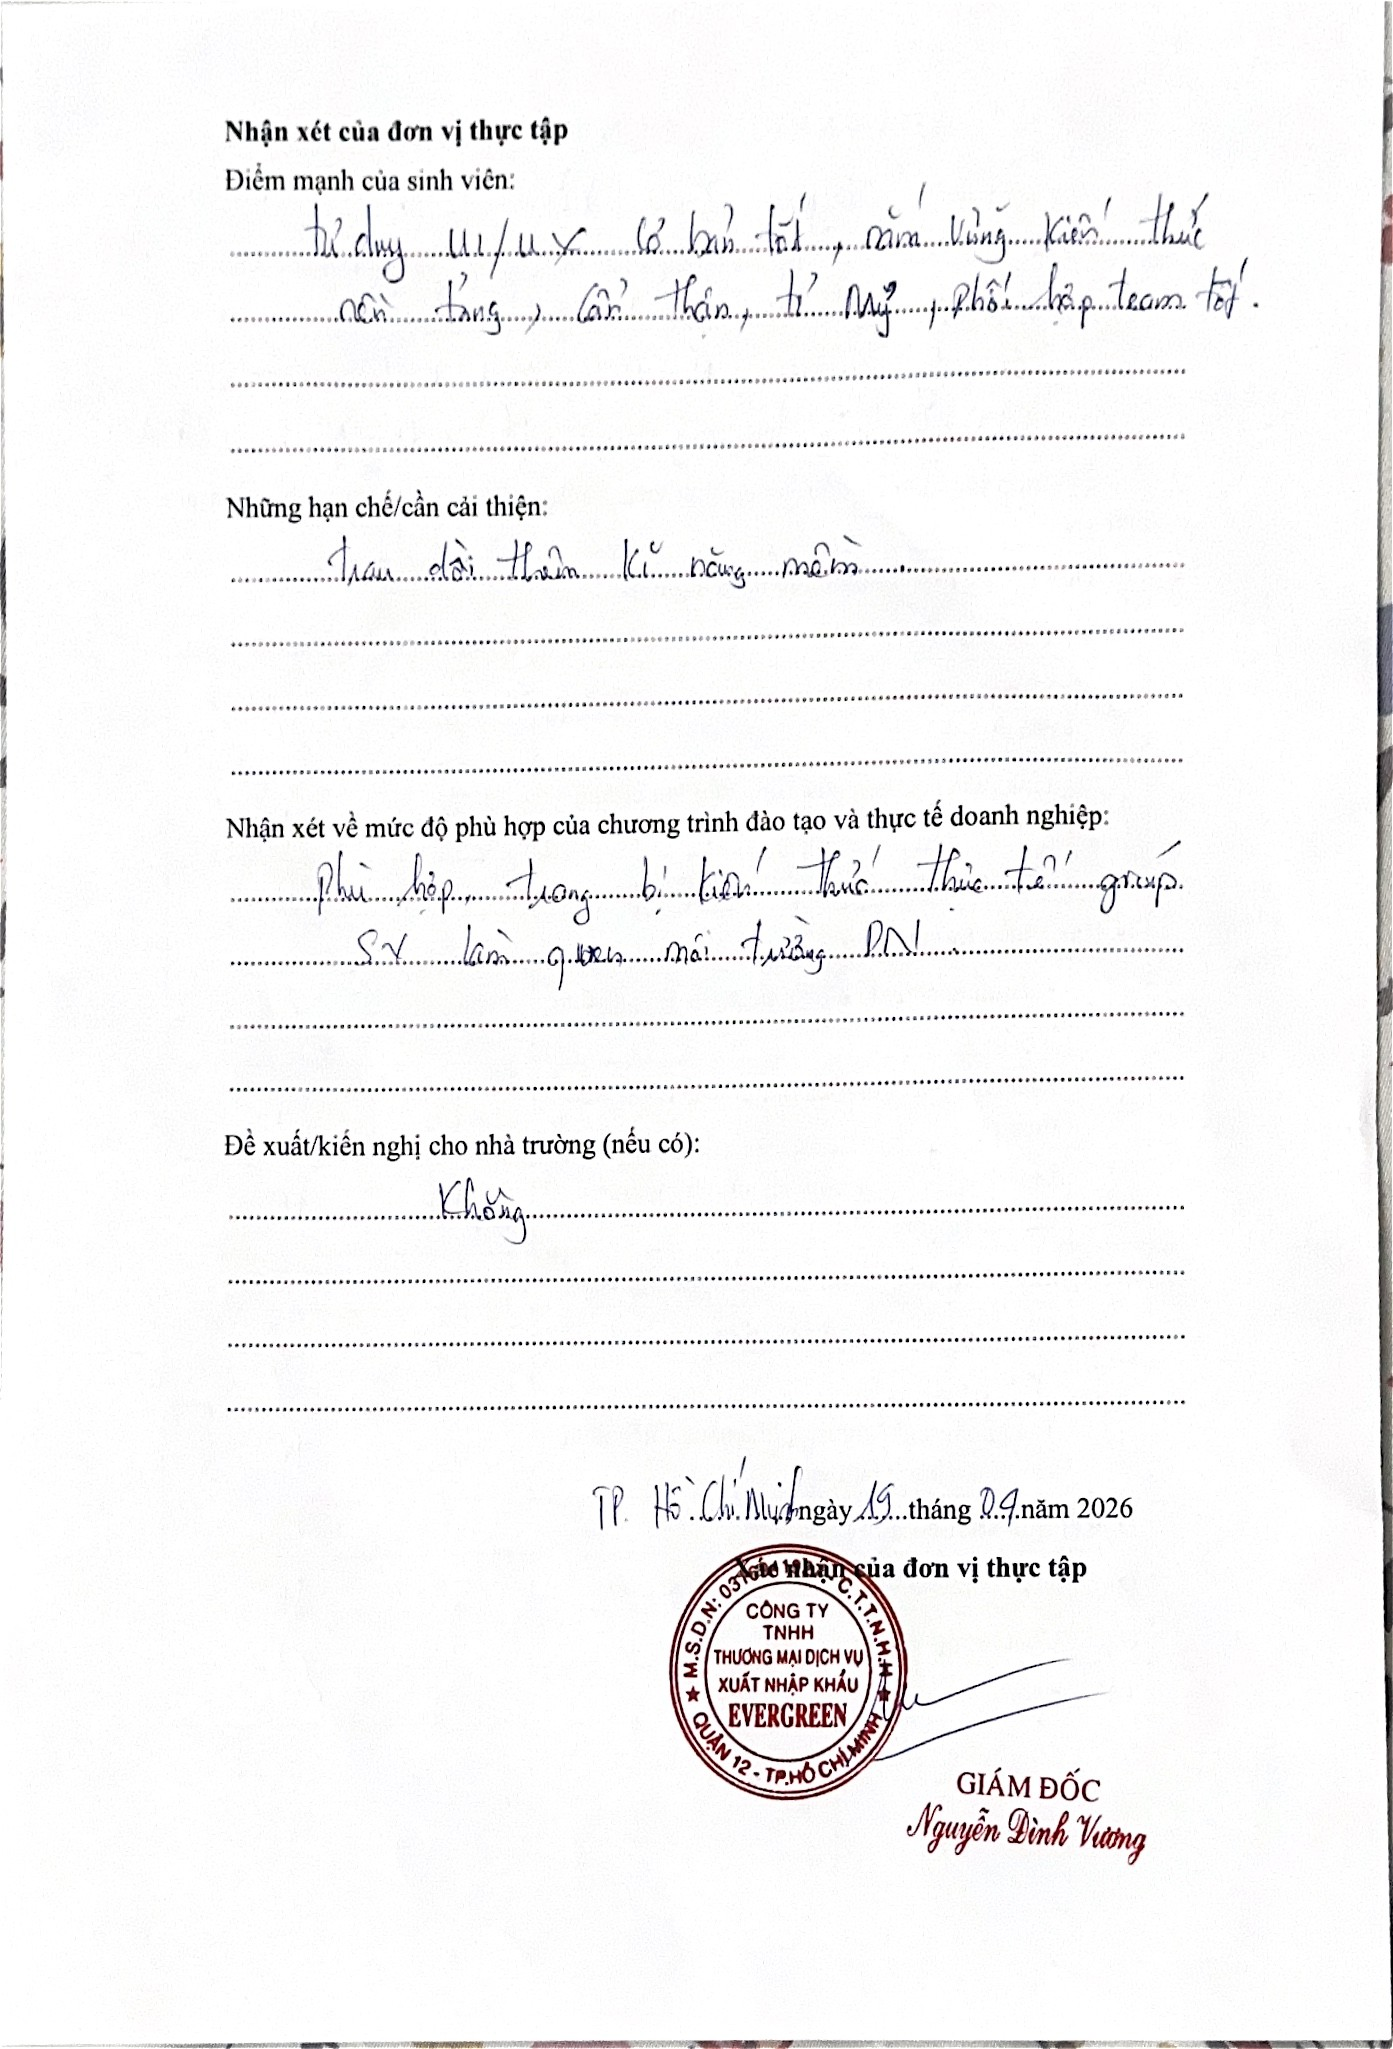 Nhận xét của đơn vị thực tập
Điểm mạnh của sinh viên:
tư duy UI/UX cơ bản tốt, nắm vững kiến thức
nền tảng, cẩn thận, tỉ mỹ, phối hợp team tốt.
Những hạn chế/cần cải thiện:
trau dồi thêm kĩ năng mềm.
Nhận xét về mức độ phù hợp của chương trình đào tạo và thực tế doanh nghiệp:
Phù hợp, trang bị kiến thức thực tế giúp
SV làm quen môi trường DN.
Đề xuất/kiến nghị cho nhà trường (nếu có):
Không
TP. Hồ Chí Minh ngày 19 tháng 04 năm 2026
Xác nhận của đơn vị thực tập
M.S.D.N: C.T.T.N.H.H
CÔNG TY
TNHH
THƯƠNG MẠI DỊCH VỤ
XUẤT NHẬP KHẨU
EVERGREEN
QUẬN 12 - TP.HỒ CHÍ MINH
GIÁM ĐỐC
Nguyễn Đình Vương